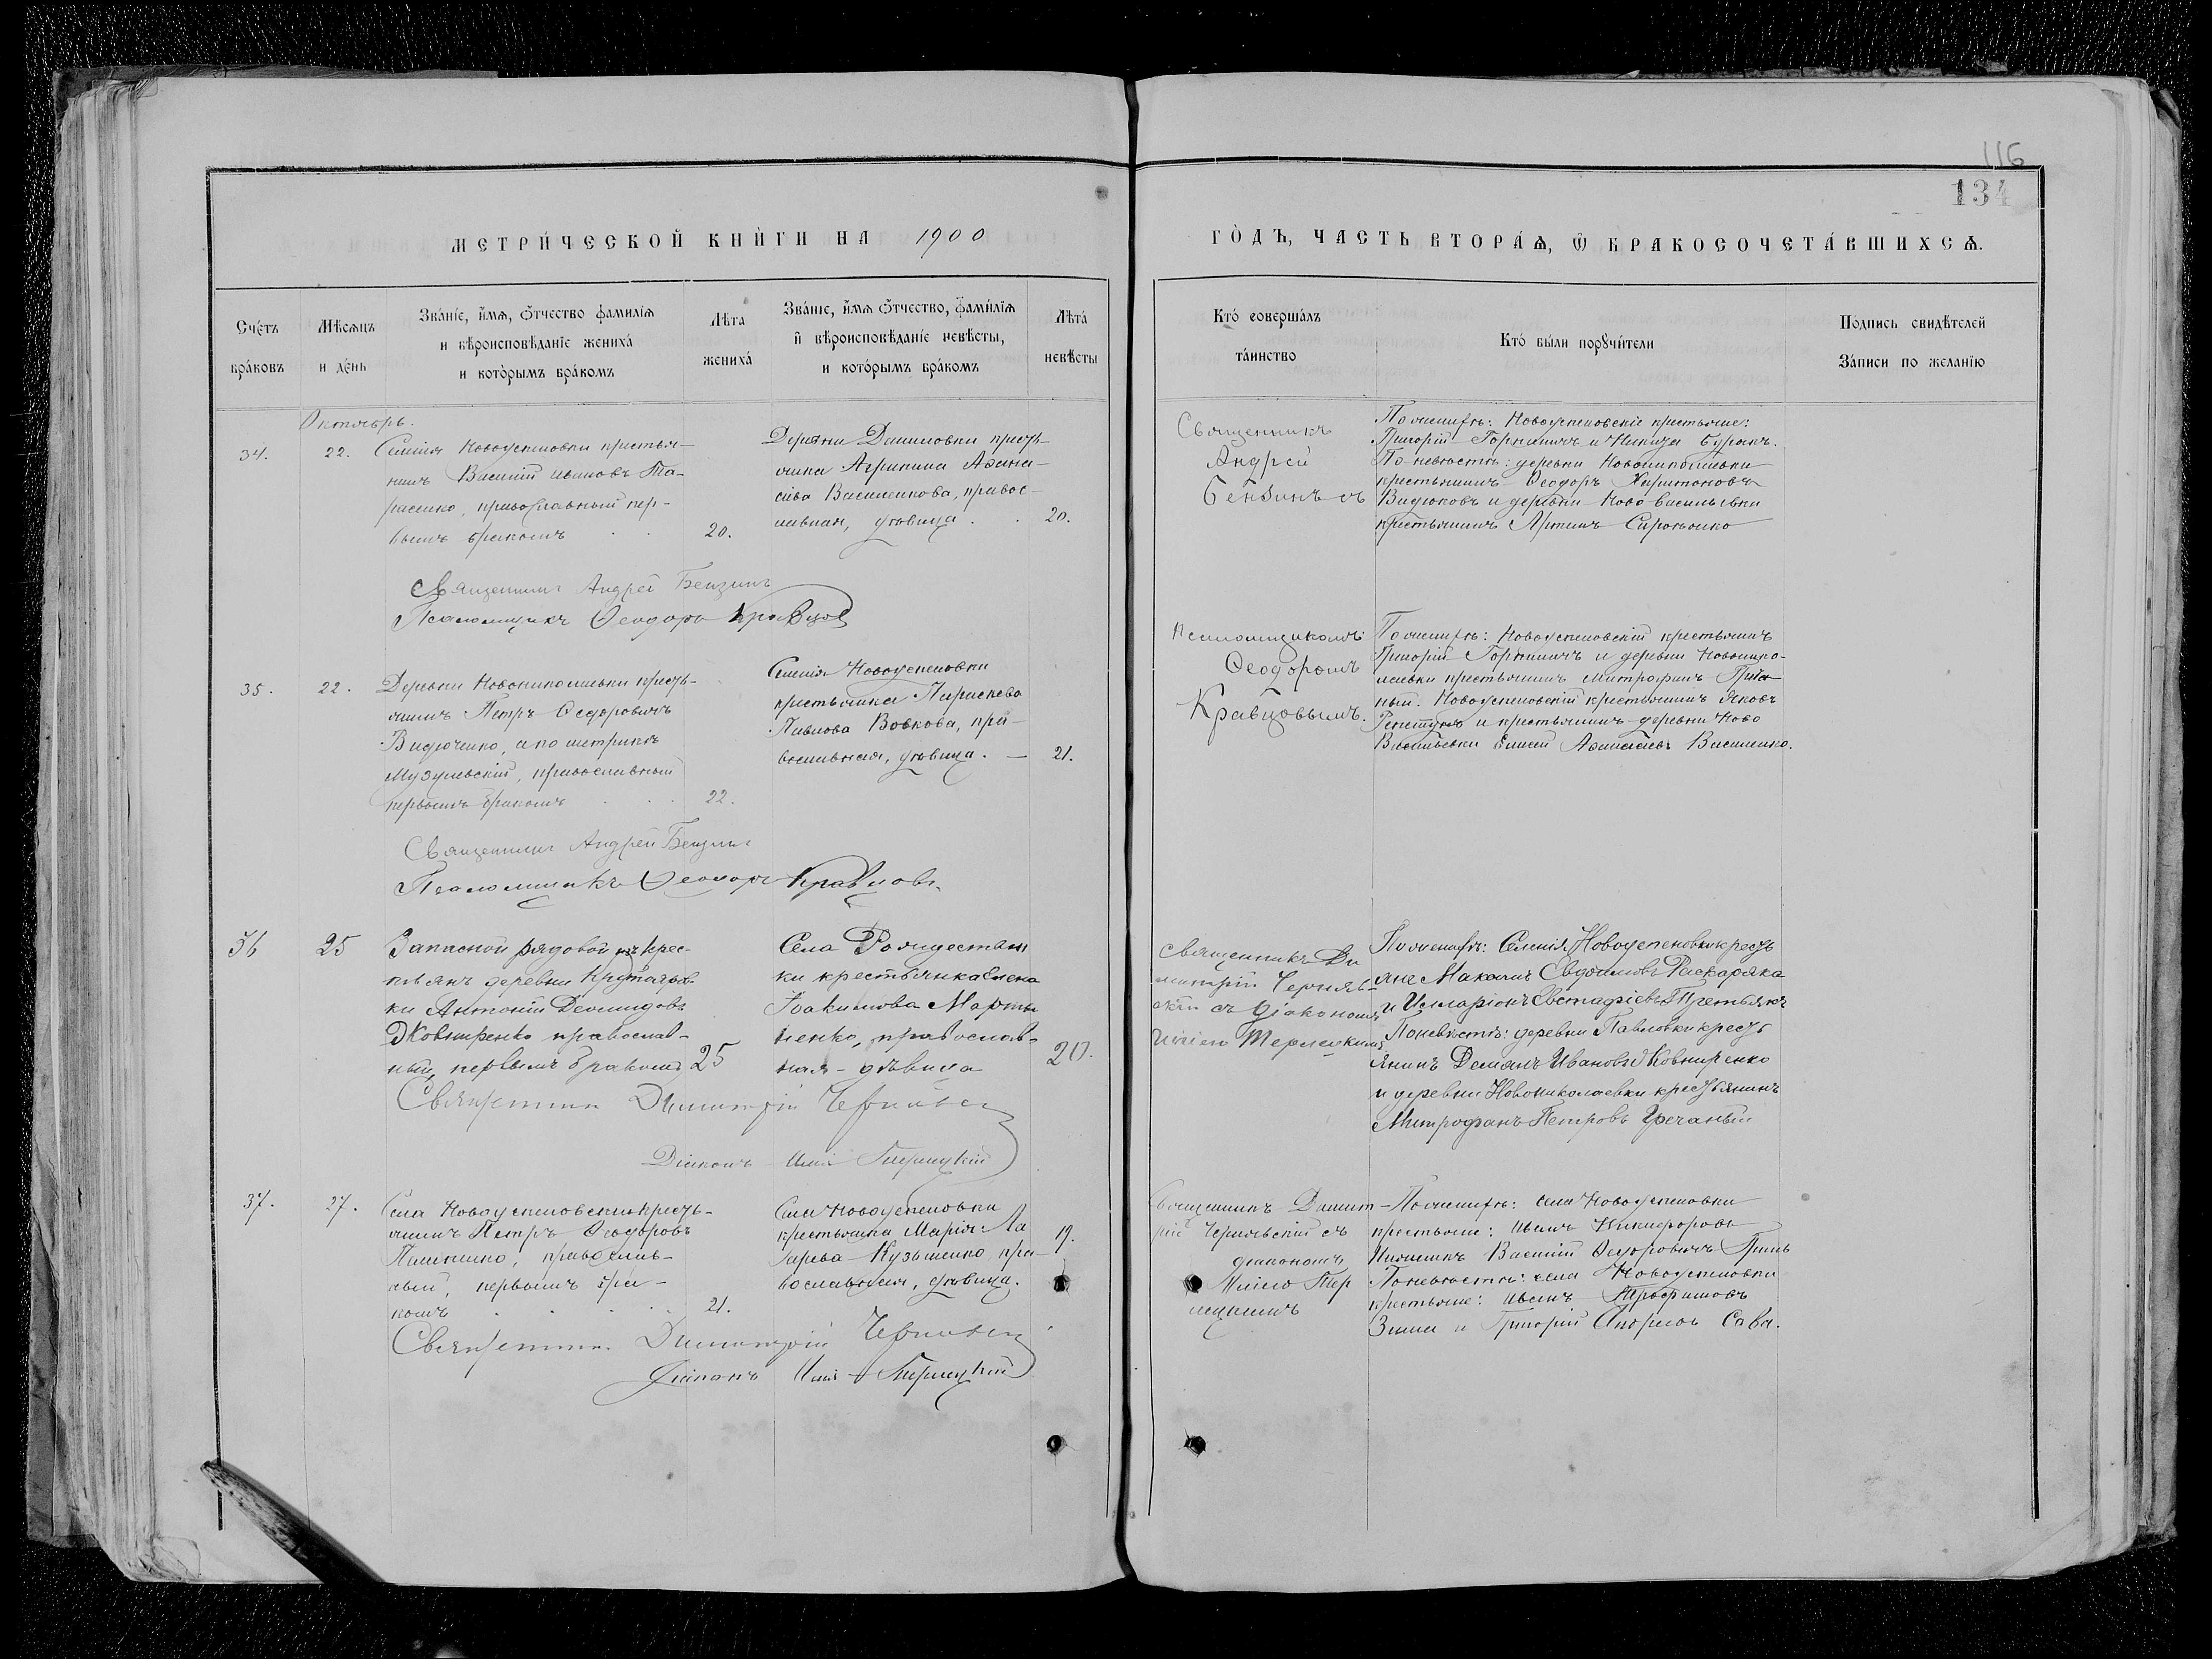 116
134
МЕТРИ́ЧЕСКОЙ КНИ́ГИ НА 1900
ГО́ДЪ, ЧАСТЬ ВТОРА́Ѧ, Ѽ БРАКОСОЧЕТА́ВШИХСѦ.
Сче́тъ
бра́ковъ
Мѣсѧцъ
и де́нь
Зва́нїе, и́мѧ, ѻ҆́тчество фамилїѧ
и вѣроисповѣданїе жениха́
и кото́рымъ бра́комъ
Лѣта
жениха́
Зва́нїе, и́мѧ ѻ҆́тчество, фами́лїѧ
и҆ вѣроисповѣ́данїе невѣ́сты,
и кото́рымъ бра́комъ
Лѣта́
невѣсты
Кто́ соверша́лъ
та́инство
Кто́ бы́ли порꙋчи́тели
По́дпись свидѣ́телей
За́писи по желанїю
Октябрь.
34.
22.
Селенія Новоуспеновки крестья-
нинъ Василій Ивановъ Та-
расенко, православный пер-
вымъ бракомъ
20.
Деревни Даниловки кресть-
янка Агрипина Афана-
сіева Василенкова, правос-
лавная, дѣвица.
20.
Священникъ
Андрей
Бензинъ съ
По женихѣ: Новоуспеновскіе крестьяне:
Григорій Горпиничъ и Никита Бурякъ.
По невѣстѣ: деревни Новониколаевки
крестьянинъ Ѳеодоръ Харитоновъ
Видюковъ и деревни Ново Васильевки
крестьянинъ
Священникъ Андрей Бензинъ
Псаломщикъ Ѳеодоръ Кравцов
35.
22.
Деревни Новониколаевки кресть-
янинъ Петръ Ѳедоровичъ
Видюченко, а по метрикѣ
православный
первымъ бракомъ
22.
Селенія Новоуспеновки
крестьянка Параскева
Павлова Вовкова, пра-
вославная, дѣвица. —
21.
Псаломщикомъ
Ѳеодоромъ
Кравцовымъ.
По женихѣ: Новоуспеновскій крестьянинъ
Григорій Горпиничъ и деревни Новонико-
лаевки крестьянинъ Митрофанъ Греча-
ный. Новоуспеновскій крестьянинъ Яковъ
и крестьянинъ деревни Ново
Васильевки Елисей Афанасіевъ Василенко.
Священникъ Андрей Бензинъ
Псаломщикъ Ѳеодоръ Кравцовъ.
36
25
Запасной рядовой изъ крес-
тьянъ деревни
ки Антоній Деомидовъ
Жовниренко православ-
ный, первымъ бракомъ
25
Села Рождествен
ки крестьянка Елена
Іоакимова Марты
ненко, православ-
ная - дѣвица
20.
Священникъ Ди
митрій Чернявс-
кій съ діакономъ
Иліею Терлецкимъ
По женихѣ: Селенія Новоуспеновки кресть
яне Максимъ Евдокимовъ
и Иларіонъ Евстафіевъ Третьякъ
По невѣстѣ: деревни Павловки кресть
янинъ Деміянъ Ивановъ Жовниренко
и деревни Новониколаевки крестьянинъ
Митрофанъ Петровъ Гречаный
Священникъ Димитрій Чернявскій
Діаконъ Илія Терлецкій
37.
27.
Села Новоуспеновски кресть-
янинъ Петръ Ѳеодоровъ
православ-
ный, первымъ бра-
комъ
21.
Села Новоуспеновки
крестьянка Марія Ла
зарева Кузьменко, пра-
вославная, дѣвица.
19.
Священникъ Димит-
рій Чернявскій съ
діакономъ
Иліею Тер
лецкимъ
По женихѣ: села Новоуспеновки
крестьяне: Иванъ Никифоровъ
Василій Ѳедоровичъ
По невѣстѣ: села Новоуспеновки
крестьяне: Иванъ Трофимовъ
Зима и Григорій Андреевъ Сова.
Священникъ Димитрій Чернявскій
Діаконъ Илія Терлецкій